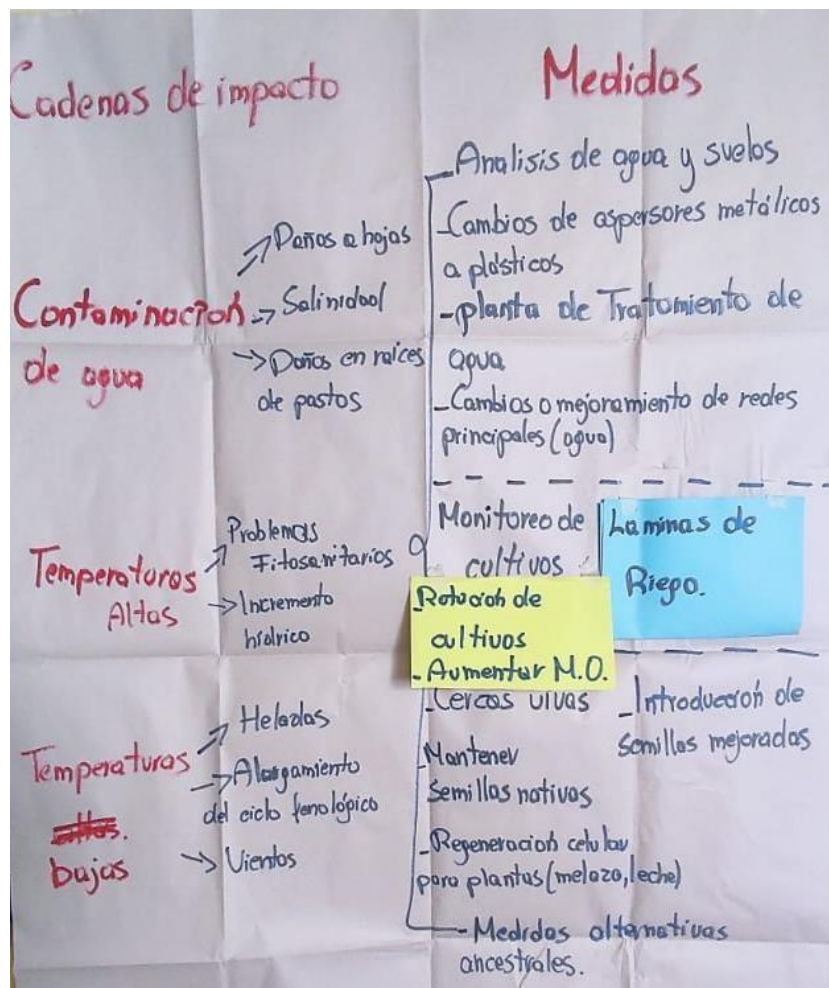 Cadenas de impacto
Contaminación
de agua
Daños a hojas
Salinidad
Daños en raíces
de pastos
Temperaturas
Altas
Problemas
Fitosanitarios
Incremento
hídrico
Temperaturas
altas.
bajas
Heladas
Alargamiento
del ciclo fenológico
Vientos
Medidas
-Analisis de agua y suelos
-Cambios de aspersores metálicos
a plásticos
-planta de Tratamiento de
agua
-Cambios o mejoramiento de redes
principales (agua)
Monitoreo de
cultivos
Laminas de
Riego.
-Rotación de
cultivos
-Aumentar M.O.
-Cercas vivas
-Introducción de
semillas mejoradas
-Mantener
semillas nativas
-Regeneración celular
para plantas (melaza, leche)
-Medidas alternativas
ancestrales.